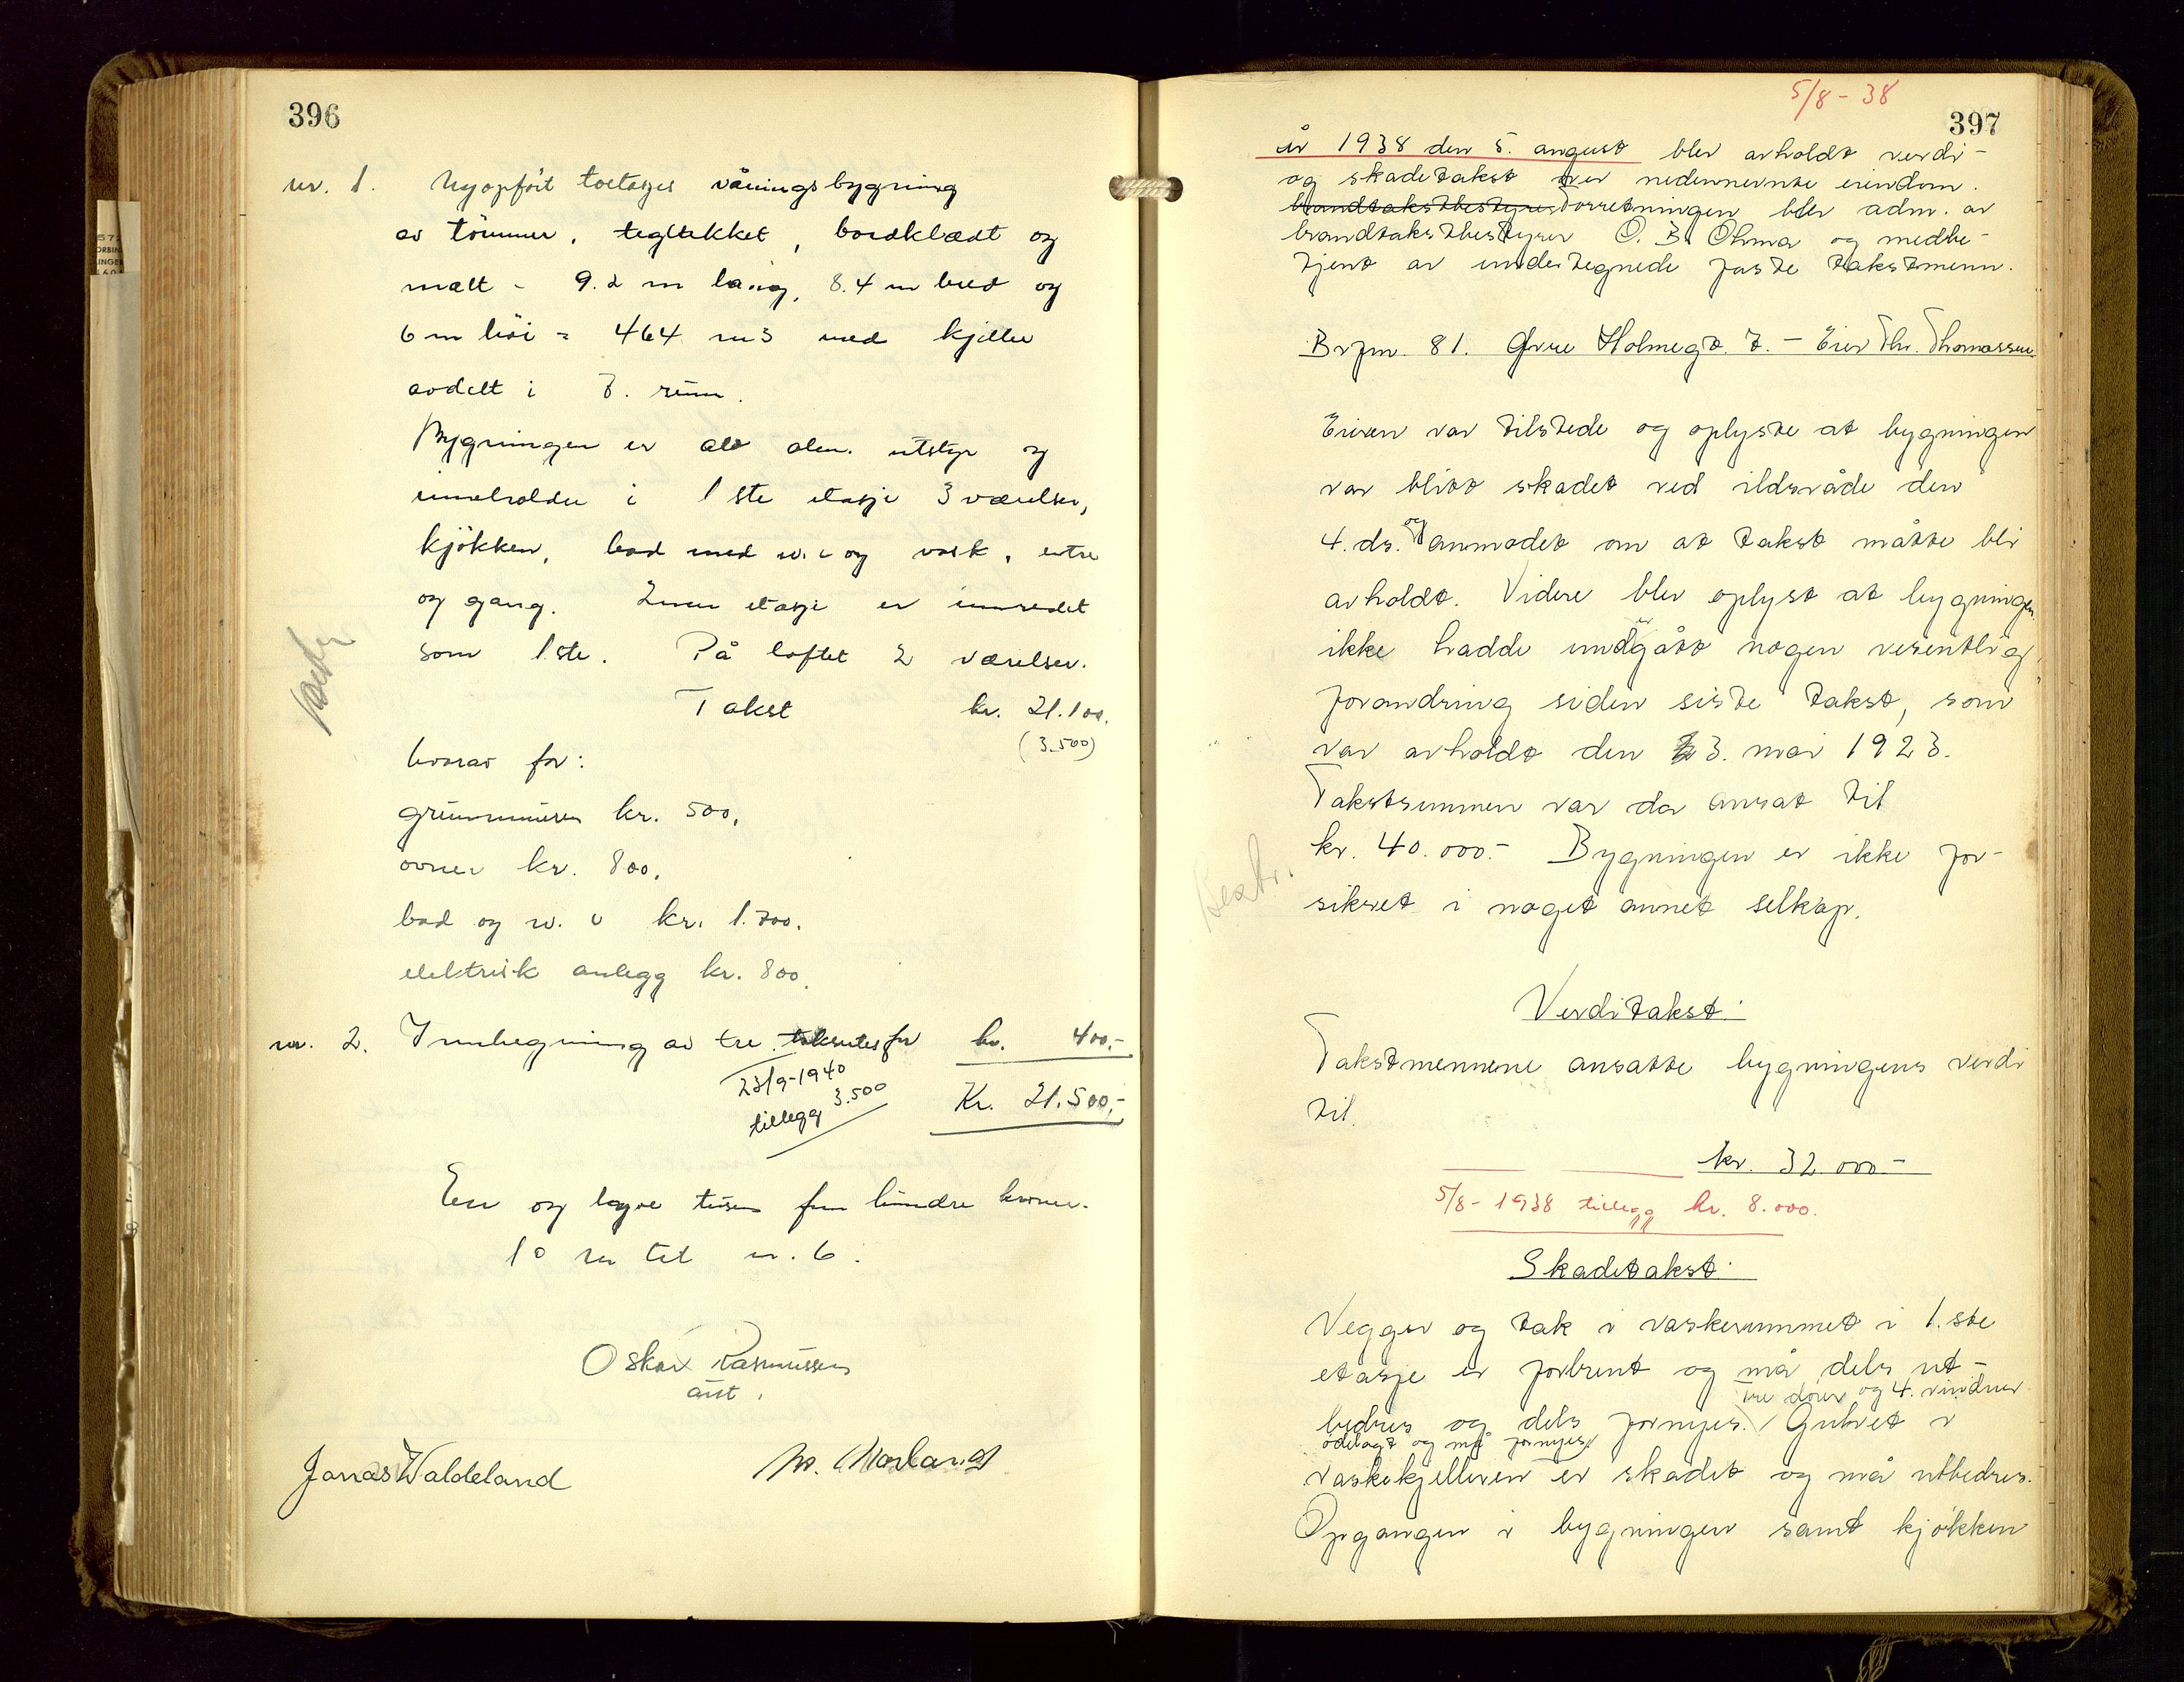 396
nr. 1. Nyopført toetasjes våningsbygning
av tömmer, tegltekket, bordklædt og
malt - 9.2 m lang, 8.4 m bred og
6 m höi = 464 m3 med kjeller
avdelt i 7. rum.
Bygningen er alt alm. utstyr og
inneholder i 1ste etasje 3 værelser,
kjökken, bad med w.c og vask, entre
og gang. 2nen etasje er innredet
som 1ste. På loftet 2 værelser.
Takst kr. 21.100.
(3.500)
hvorav for:
grunnmuren kr. 500,
ovner kr. 800,
bad og w.c kr. 1.700.
elektrisk anlegg kr. 800.
nr. 2. Innhegning av tre. takseres for kr. 400,-
23/9-1940
tillegg 3.500
Kr. 21.500,-
En og tyve tusen fem hundre kroner.
1° nr til nr. 6.
Oskar Rasmussen
ast.
Jonas Waldeland
5/8 - 38
397
År 1938 den 5. august blev avholdt verdi-
og skadetakst over nedennevnte eiendom.
brandtakstbestyrer Forretningen blev adm. av
brandtakstbestyrer O. B. Ohma og medbe-
tjent av undertegnede faste takstmenn.
Brfm. 81. Øvre Holmegt. 7. - Eier Thr. Thomassen.
Eieren var tilstede og oplyste at bygningen
var blitt skadet ved ildsvåde den
4. ds. og anmodet om at takst måtte bli
avholdt. Videre blev oplyst at bygningen
ikke hadde undergått nogen vesentlig
forandring siden siste takst, som
var avholdt den 3. mai 1923.
Takstsummen var da ansat til
kr. 40.000.- Bygningen er ikke for-
sikret i noget annet selskap.
Verditakst:
Takstmennene ansatte bygningens verdi
til.
kr. 32.000-
5/8 - 1938 tillegg kr. 8.000.
Skadetakst:
Vegger og tak i vaskerummet i 1.ste
etasje er forbrent og må dels ut-
tre dörer og 4. vinduer
bedres og dels fornyes. Gulvet i
ödelagt og må fornyes
vaskekjelleren er skadet og må utbedres.
Opgangen i bygningen samt kjökken